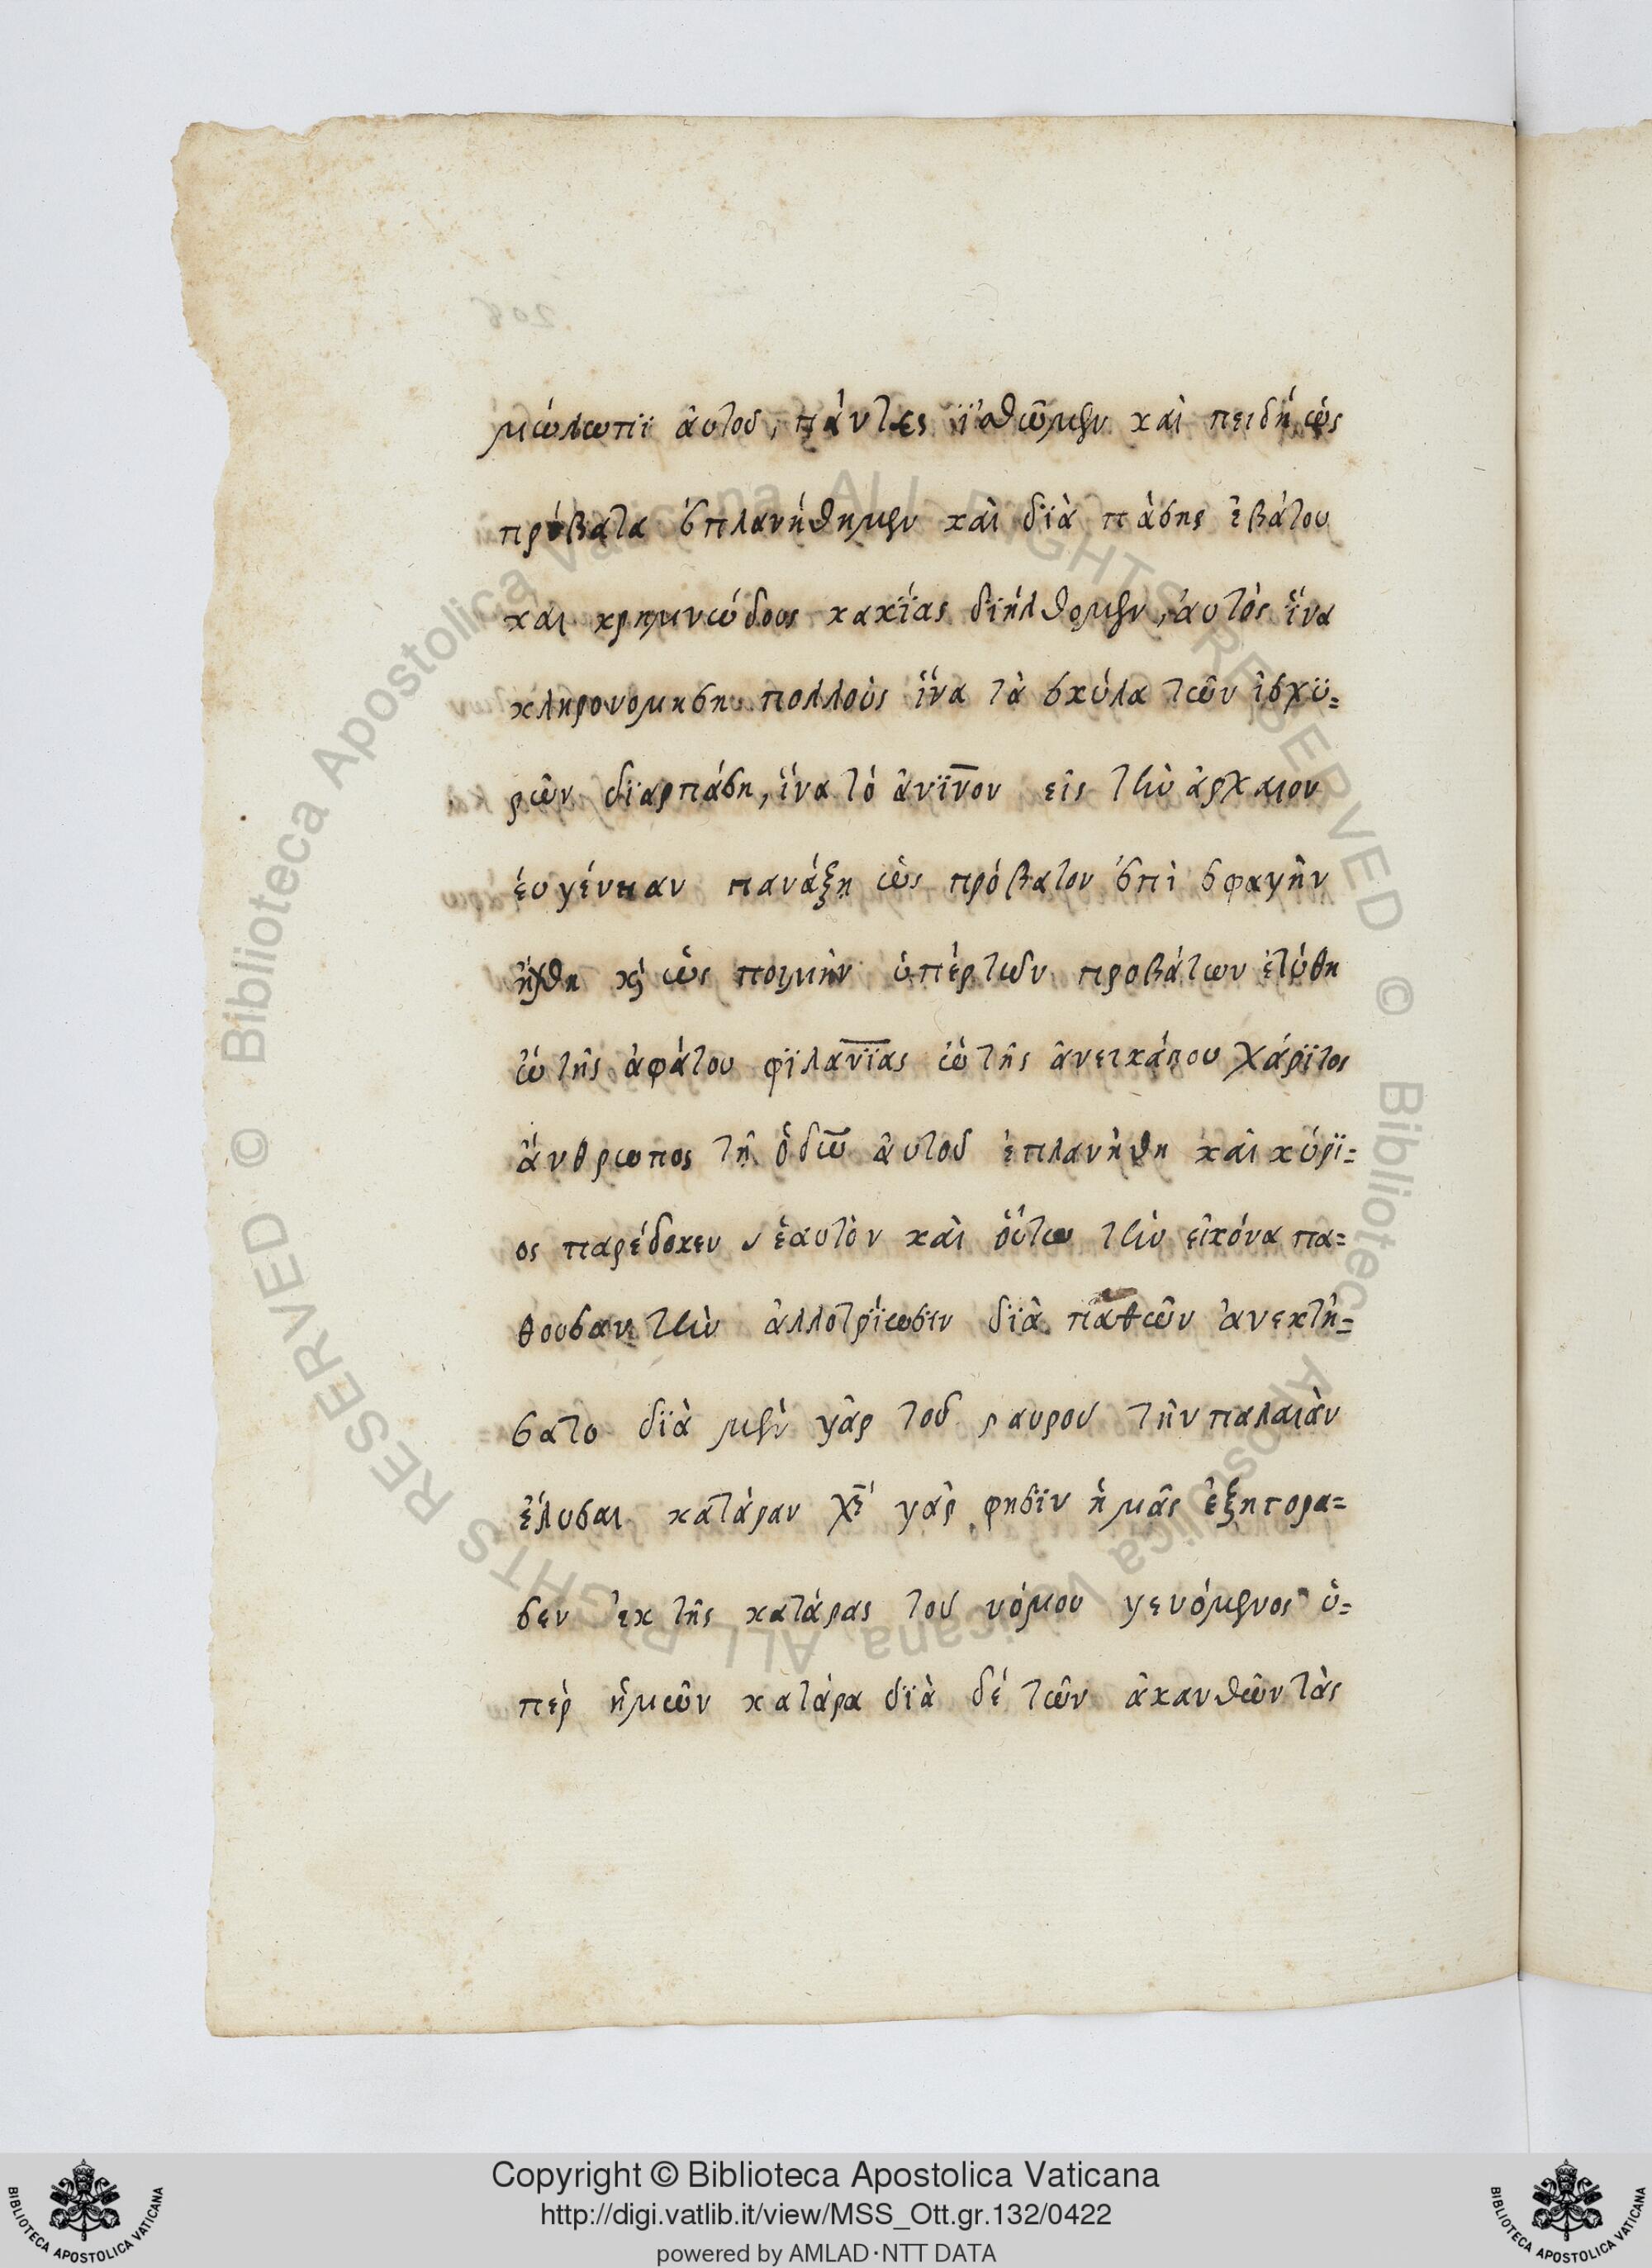 μώλωπϊ ἀυτοῦ, πάντες ϊἀθῶμεν καὶ πειδὴ ὡς
πρόβατα ἐπλανήθημεν καὶ δϊὰ πάσης ἐβάτου
και κρημνώδους κακΐας δϊήλθομεν, ἀυτὸς ἵνα
κληρονομηση πολλοὺς ἵνα τὰ σκύλα τῶν ἰσχϋ=
ρῶν δϊαρπάση, ἵνα τὸ ἀνϊνον εἰς τὴν ἀρχαιον
ἐυγένειαν πανάξη ὡς πρόβατον ἐπὶ σφαγὴν
ἤχθη κὶ ὡς ποιμὴν ὑπέρτων προβάτων ἐτύθη
ὢ τῆς ἀφάτου φϊλανϊας ὢ τῆς ἀνεικάσου χάρϊτος
ἄνθρωπος τῆ ὁδω ἀυτοῦ ἐπλανήθη καὶ κύρϊ=
ος παρέδοκεν ἑαυτὸν καὶ ὅυτω τὴν εἰκόνα πα=
θουσαν τὴν ἀλλοτρϊωσϊν δϊὰ παθῶν ἀνεκτή=
σατο δϊὰ μὲν γὰρ τοῦ ϛαυροῦ τὴν παλαιὰν
ἔλυσαι κατάραν χς γὰρ φησϊν ἡμᾶς ἐξηγορα=
σεν ἐκ τῆς κατάρας τοῦ νόμου γενόμενος ὑ=
πὲρ ἡμῶν κατάρα δϊὰ δέ τῶν ἀκανθῶν τὰς
Copyright © Biblioteca Apostolica Vaticana
http://digi.vatlib.it/view/MSS_Ott.gr.132/0422
powered by AMLAD·NTT DATA